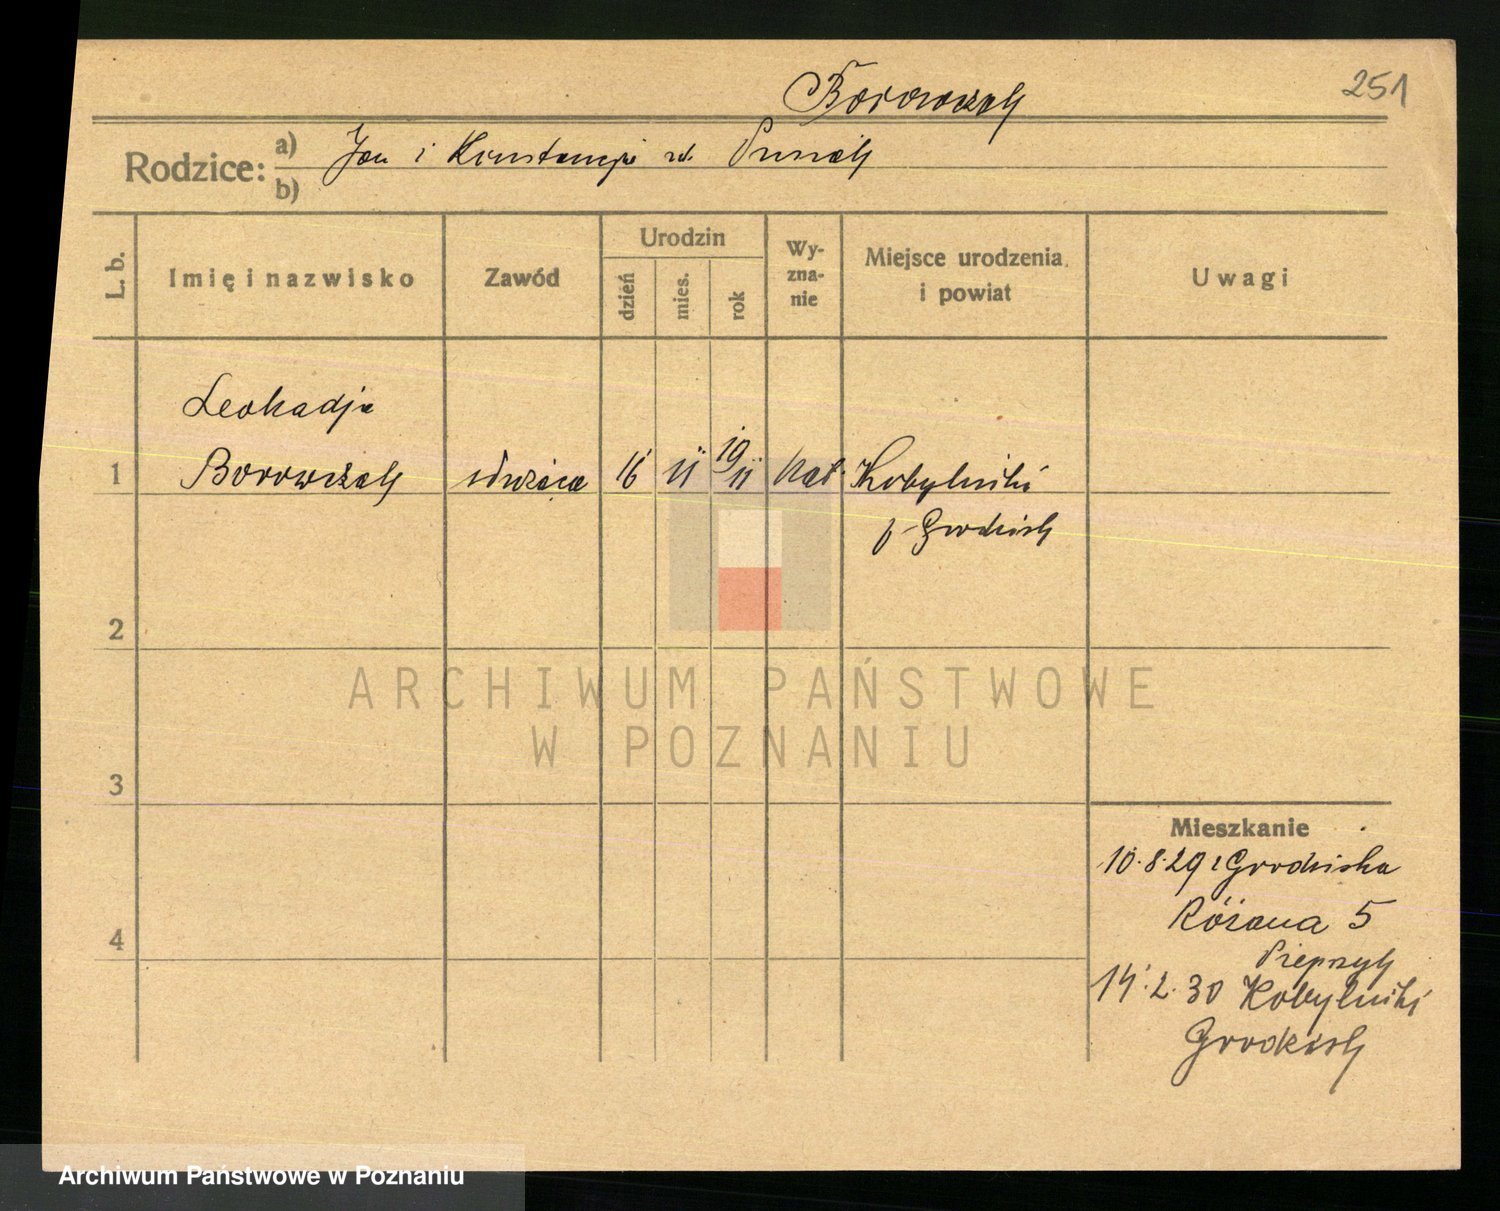 251
Borowczak
Rodzice: a) Jan i Konstancja
b)
L. b.
Imię i nazwisko
Zawód
Urodzin
dzień
mies.
rok
Wy-
zna-
nie
Miejsce urodzenia
i powiat
Uwagi
Leokadja
1 Borowczak służąca 16 11 1911 kat. Kobylniki
p. Grodzisk
2
3
4
Mieszkanie
10.8.29 z Grodziska
Różana 5
14.2.30 Kobylniki
Grodzisk
ARCHIWUM PAŃSTWOWE
W POZNANIU
Archiwum Państwowe w Poznaniu